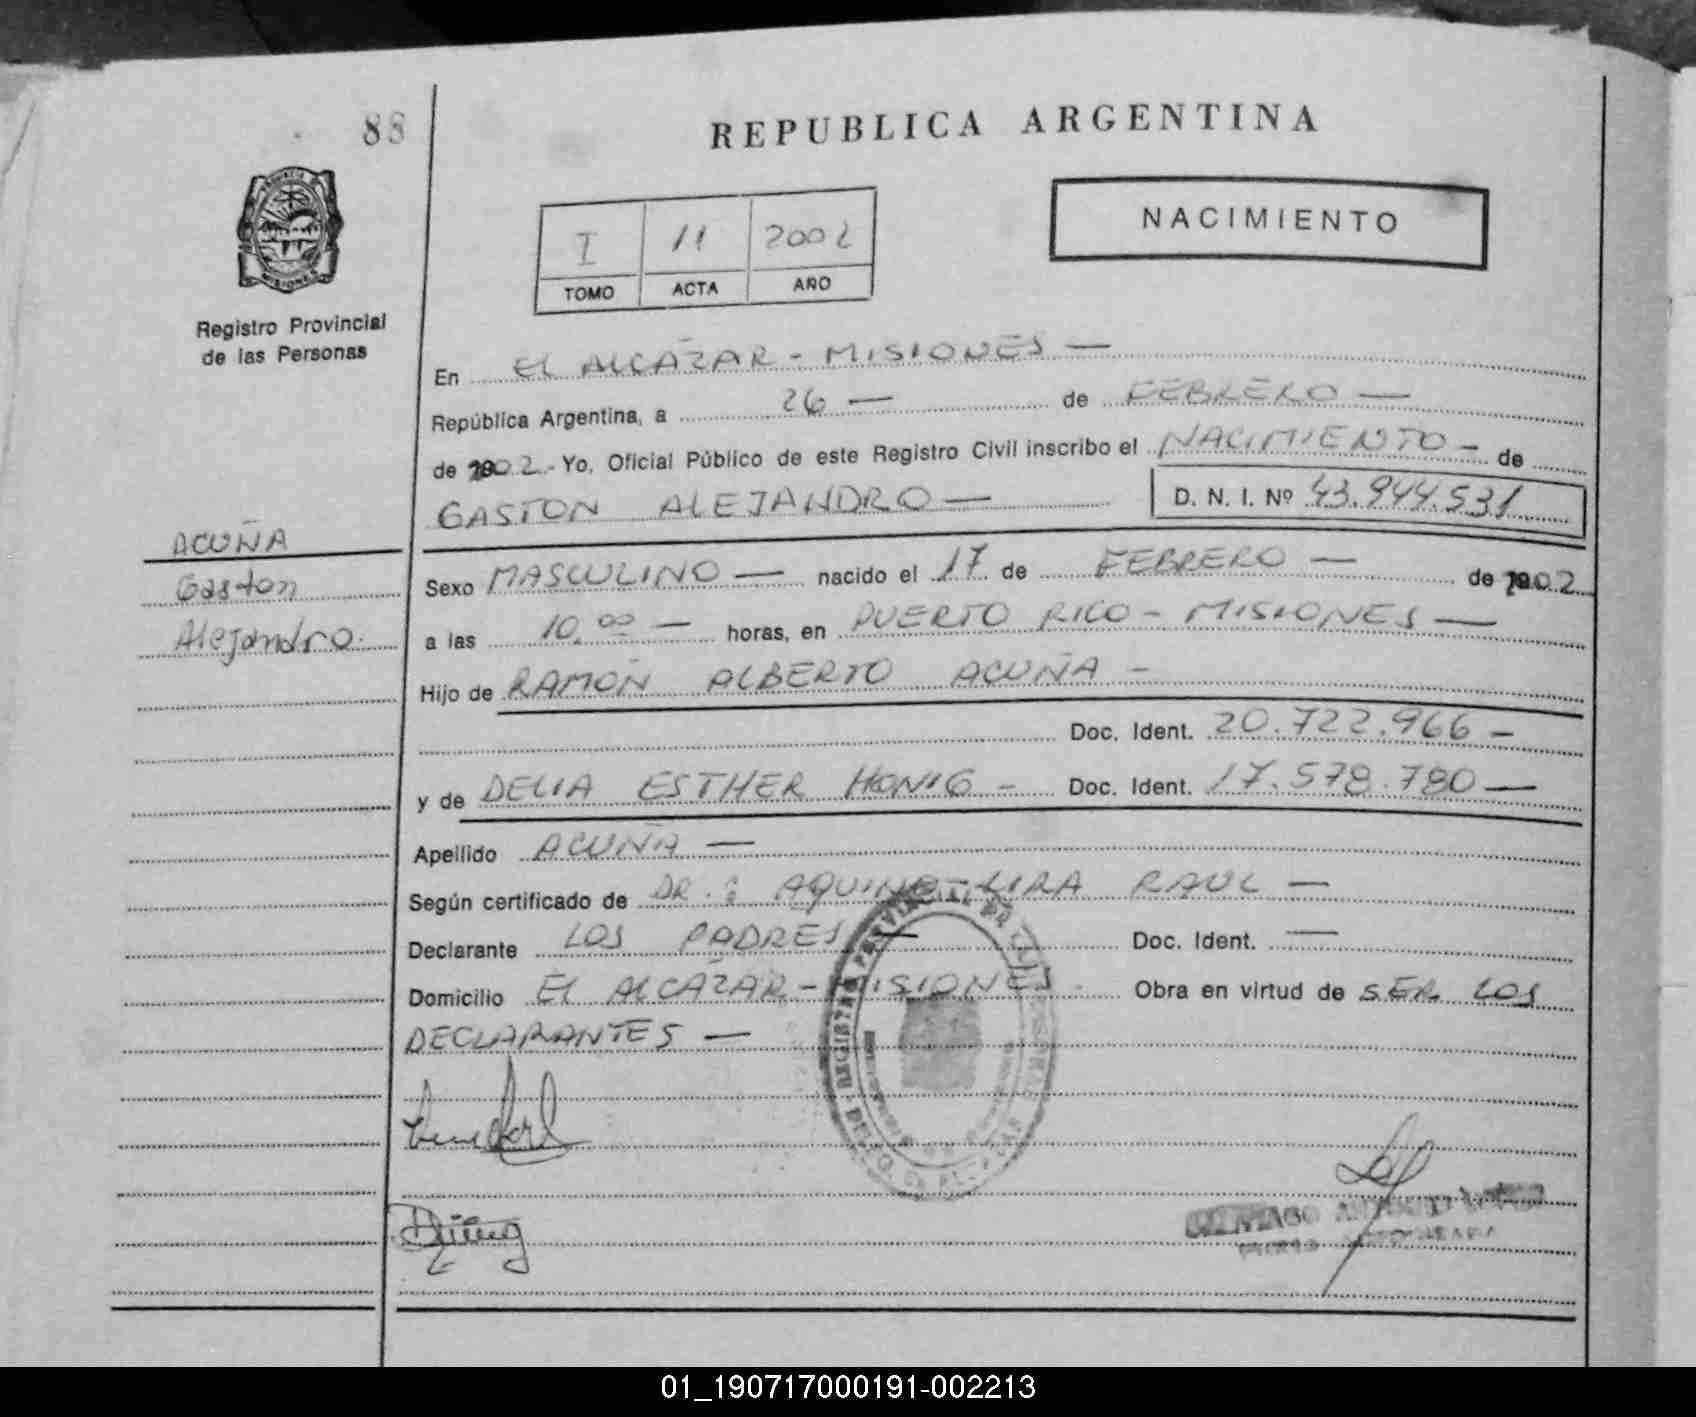 88
REPUBLICA ARGENTINA
NACIMIENTO
I 11 2002
TOMO ACTA AÑO
PROVINCIA DE MISIONES
Registro Provincial
de las Personas
En EL ALCÁZAR - MISIONES —
República Argentina, a 26 — de FEBRERO —
de 2002.- Yo, Oficial Público de este Registro Civil inscribo el NACIMIENTO - de
GASTON ALEJANDRO — D. N. I. Nº 43.944.531
ACUÑA
Gaston
Alejandro.
Sexo MASCULINO — nacido el 17 de FEBRERO — de 2002
a las 10,00 — horas, en PUERTO RICO - MISIONES —
Hijo de RAMÓN ALBERTO ACUÑA -
Doc. Ident. 20.722.966 -
y de DELIA ESTHER HONIG - Doc. Ident. 17.578.780 —
Apellido ACUÑA —
Según certificado de DR.: AQUINO - LIRA RAUL —
Declarante LOS PADRES — Doc. Ident. —
Domicilio EL ALCÁZAR - MISIONES - Obra en virtud de SER LOS
DECLARANTES —
REGISTRO PROVINCIAL DE LAS PERSONAS
SANTIAGO ANTONIO
01_190717000191-002213